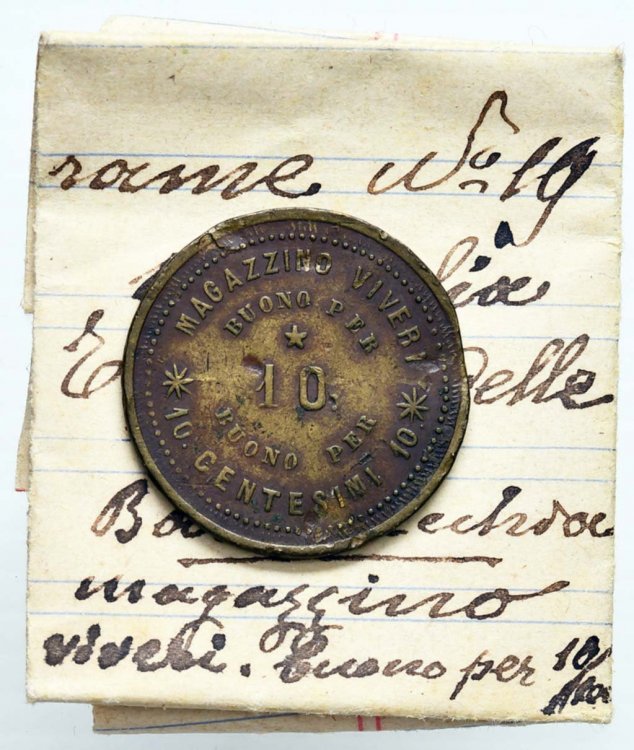 rame No. 19
delle
magazzino
viveri. buono per 10
MAGAZZINO VIVERI
BUONO PER
10
BUONO PER
10. CENTESIMI 10.